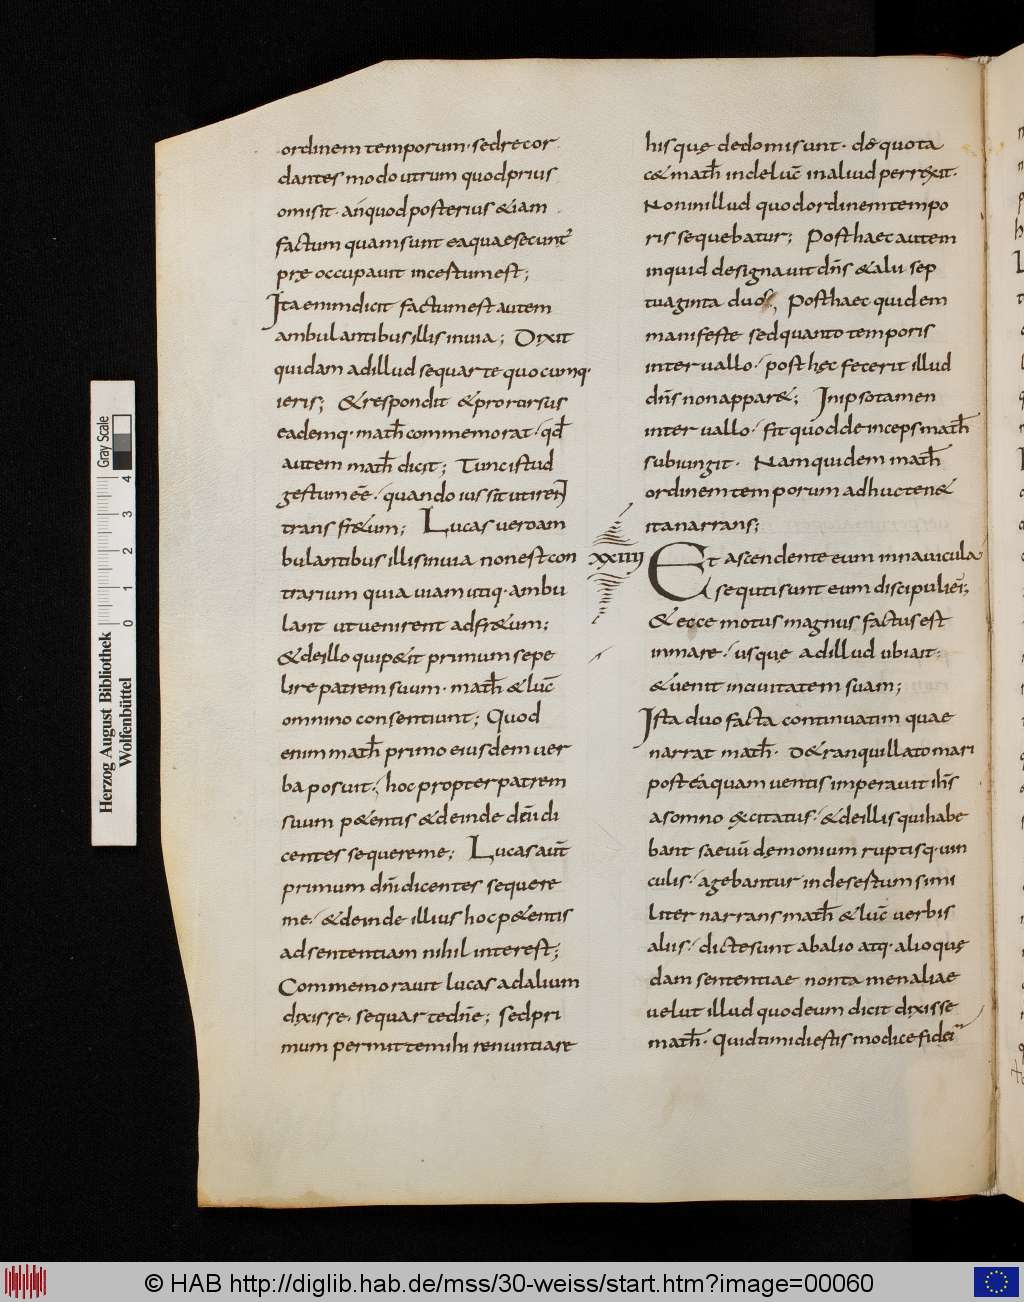 ordinem temporum· sed recor
dantes modo utrum quod prius
omisit· an quod posterius & iam
factum quam sunt ea quae secunt᷑
prę occupauit incestum est;
Ita enim dicit factum est autem
ambulantibus illis in uia; Dixit
quidam ad illud sequar te quocumq·
ieris; & respondit & prorursus
eadem q· math̅ commemorat· qd̅
autem math̅ dicit; Tunc istud
gestum ēē· quando iussit ut iren̅
trans fr&um; Lucas uero am
bulantibus illis in uia non est con
trarium quia uiam utiq· ambu
lant ut uenirent ad fr&um;
& de illo qui p&it primum sepe
lire patrem suum· math̅ & luc̅
omnino consentiunt; Quod
enim math̅ primo eiusdem uer
ba posuit· hoc propter patrem
suum p&entis & deinde dn̅i di
centes sequere me; Lucas aut̅
primum dn̅i dicentes sequere
me· & deinde illius hoc p&entis
ad sententiam nihil interest;
Commemorauit lucas ad alium
dixisse· sequar te dn̅e; sed pri
mum permitte mihi renuntiare
his quę de domi sunt· de quo ta
c& math̅ inde luc̅ in aliud perrexit·
Non in illud quod ordinem tempo
ris sequebatur; Post haec autem
inquid designauit dn̅s & alii sep
tuaginta duos; Post haec quidem
manifeste sed quanto temporis
interuallo· post hęc fecerit illud
dn̅s non appar&; In ipso tamen
interuallo· fit quod deinceps math̅
subiungit· Nam quidem math̅
ordinem temporum adhuc ten&
ita narrans;
xxiiii Et ascendente eum in nauicula
sequti sunt eum discipuli ei;
& ecce motus magnus factus est
in mare· usquę ad illud ubi ait·
& uenit in ciuitatem suam;
Ista duo facta continuatim quae
narrat math̅· De tranquillato mari
postea quam uentis imperauit ih̅s
a somno excitatus· & de illis qui habe
bant saeuū demonium ruptisq· uin
culis· agebantur in desertum simi
liter narrans math̅ & luc̅ uerbis
aliis· dicte sunt ab alio atq· alio quę
dam sententiae non tamen aliae
uelut illud quod eum dicit dixisse
math̅· Quid timidi estis modice fidei
Herzog August Bibliothek
Wolfenbüttel
Gray Scale
0 1 2 3 4
© HAB http://diglib.hab.de/mss/30-weiss/start.htm?image=00060